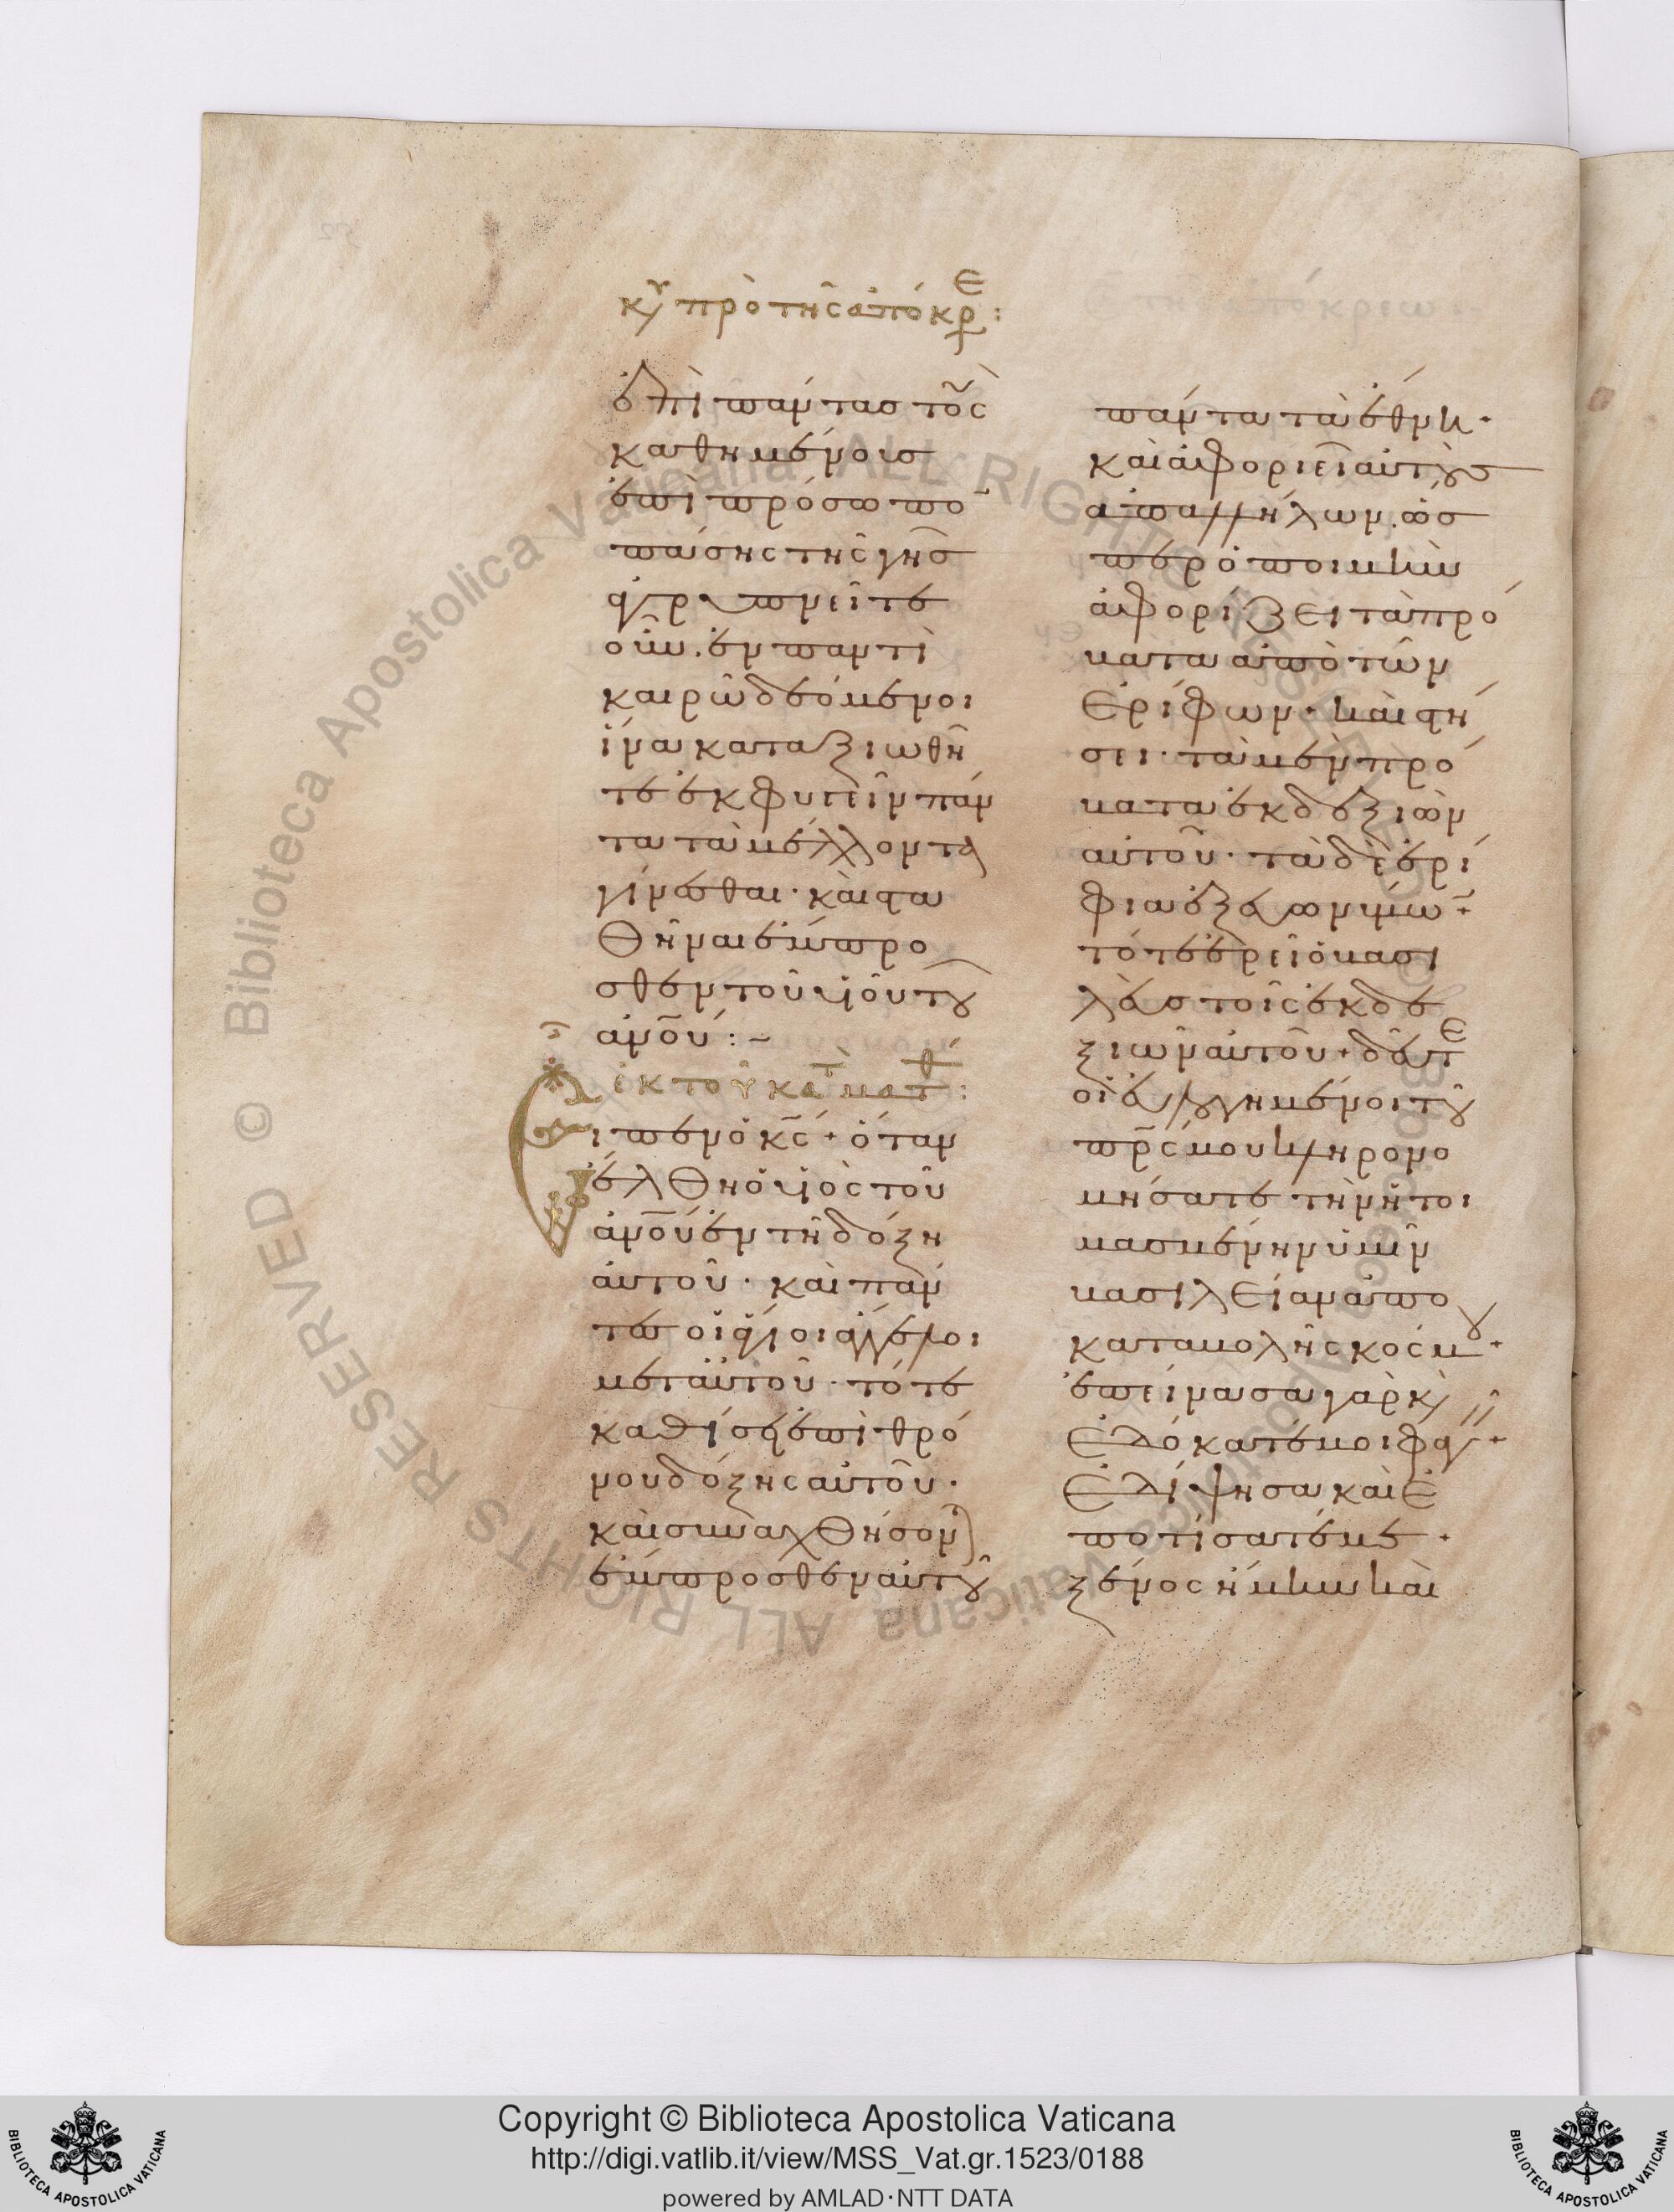 κυ πρὸ τῆς ἀπόκρε :
ἐπὶ πάντας τοὺς
καθημένους
ἐπὶ πρόσωπον
πάσης τῆς γῆς
ἀγρυπνεῖτε
οὖν. ἐν παντὶ
καιρῶ δεόμενοι
ἵνα καταξιωθῆ
τε ἐκφυγεῖν πάν
τα τὰ μέλλοντα
γίνεσθαι · καὶ στα
θῆναι ἔμπρο
σθεν τοῦ υἱοῦ τοῦ
ἀνου : ~
ἐκ τοῦ κατ ματθ :
Εἶπεν ὁ κς + ὅταν
ἔλθη ὁ υἱὸς τοῦ
ἀνου ἐν τῆ δόξη
αὐτοῦ · καὶ πάν
τες οἱ ἅγιοι ἄγγελοι
μετ αὐτοῦ · τότε
καθίσει ἐπὶ θρό
νου δόξης αὐτοῦ ·
καὶ συναχθήσονται
ἔμπροσθεν αὐτοῦ
πάντα τὰ ἔθνη ·
καὶ ἀφοριεῖ αὐτοὺς
ἀπ ἀλλήλων. ὥσ
περ ὁ ποιμὴν
ἀφορίζει τὰ πρό
βατα ἀπὸ τῶν
ἐρίφων · καὶ στή
σει · τὰ μὲν πρό
βατα ἐκ δεξιῶν
αὐτοῦ · τὰ δὲ ἐρί
φια ἐξ εὐωνύμων +
τότε ἐρεῖ ὁ βασι
λεὺς τοῖς ἐκ δε
ξιῶν αὐτοῦ + δεῦτε
οἱ εὐλογημένοι τοῦ
πρς μου κληρονο
μήσατε τὴν ἡτοι
μασμένην ὑμῖν
βασιλείαν ἀπὸ
καταβολῆς κόσμου +
ἐπείνασα γὰρ καὶ
ἐδώκατέ μοι φαγεῖν +
ἐδίψησα καὶ ἐ
ποτίσατέ με ·
ξένος ἤμην καὶ
Copyright © Biblioteca Apostolica Vaticana
http://digi.vatlib.it/view/MSS_Vat.gr.1523/0188
powered by AMLAD·NTT DATA
BIBLIOTECA APOSTOLICA VATICANA
BIBLIOTECA APOSTOLICA VATICANA
© Biblioteca Apostolica Vaticana ALL RIGHTS RESERVED © Biblioteca Apostolica Vaticana ALL RIGHTS RESERVED